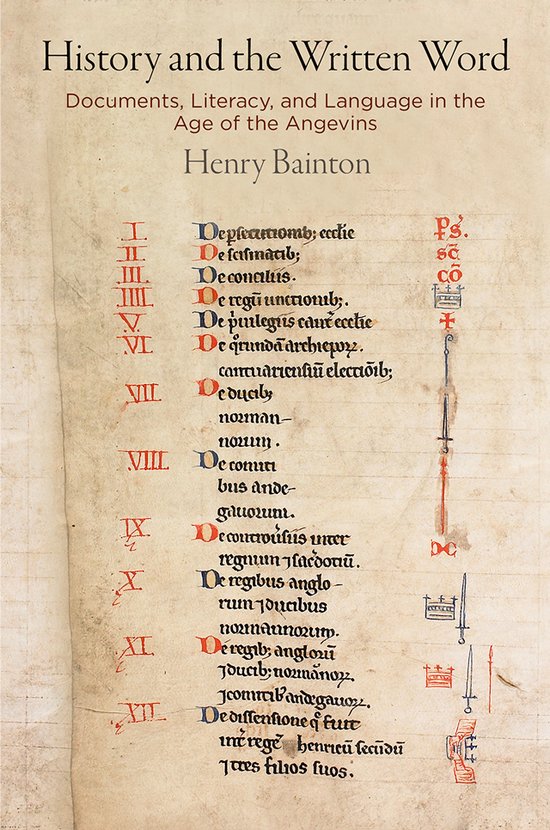 History and the Written Word
Documents, Literacy, and Language in the
Age of the Angevins
Henry Bainton
I. De ꝑsecutionib; eccľie p̄s.
II De scismatib; sc̄
III. De conciliis. cō
IIII De regū unctionib;.
V. De pͥuilegiis cant̄ eccľie
VI. De qͦrundā archiepoꝝ.
cantuariensiū electiōib;
VII De ducib;
norman-
norum.
VIII. De comiti
bus ande-
gauorum.
IX. De controuͥsiis inter
regnum ⁊ sac̾dotiū.
X. De regibus anglo-
rum ⁊ ducibus
normannorum.
XI. De regib; anglorū
⁊ ducib; normānoꝝ.
⁊ comitib' andegauoꝝ.
XII. De dissensione q̄ fuit
int̾ regē henricū secūdū
⁊ tres filios suos.